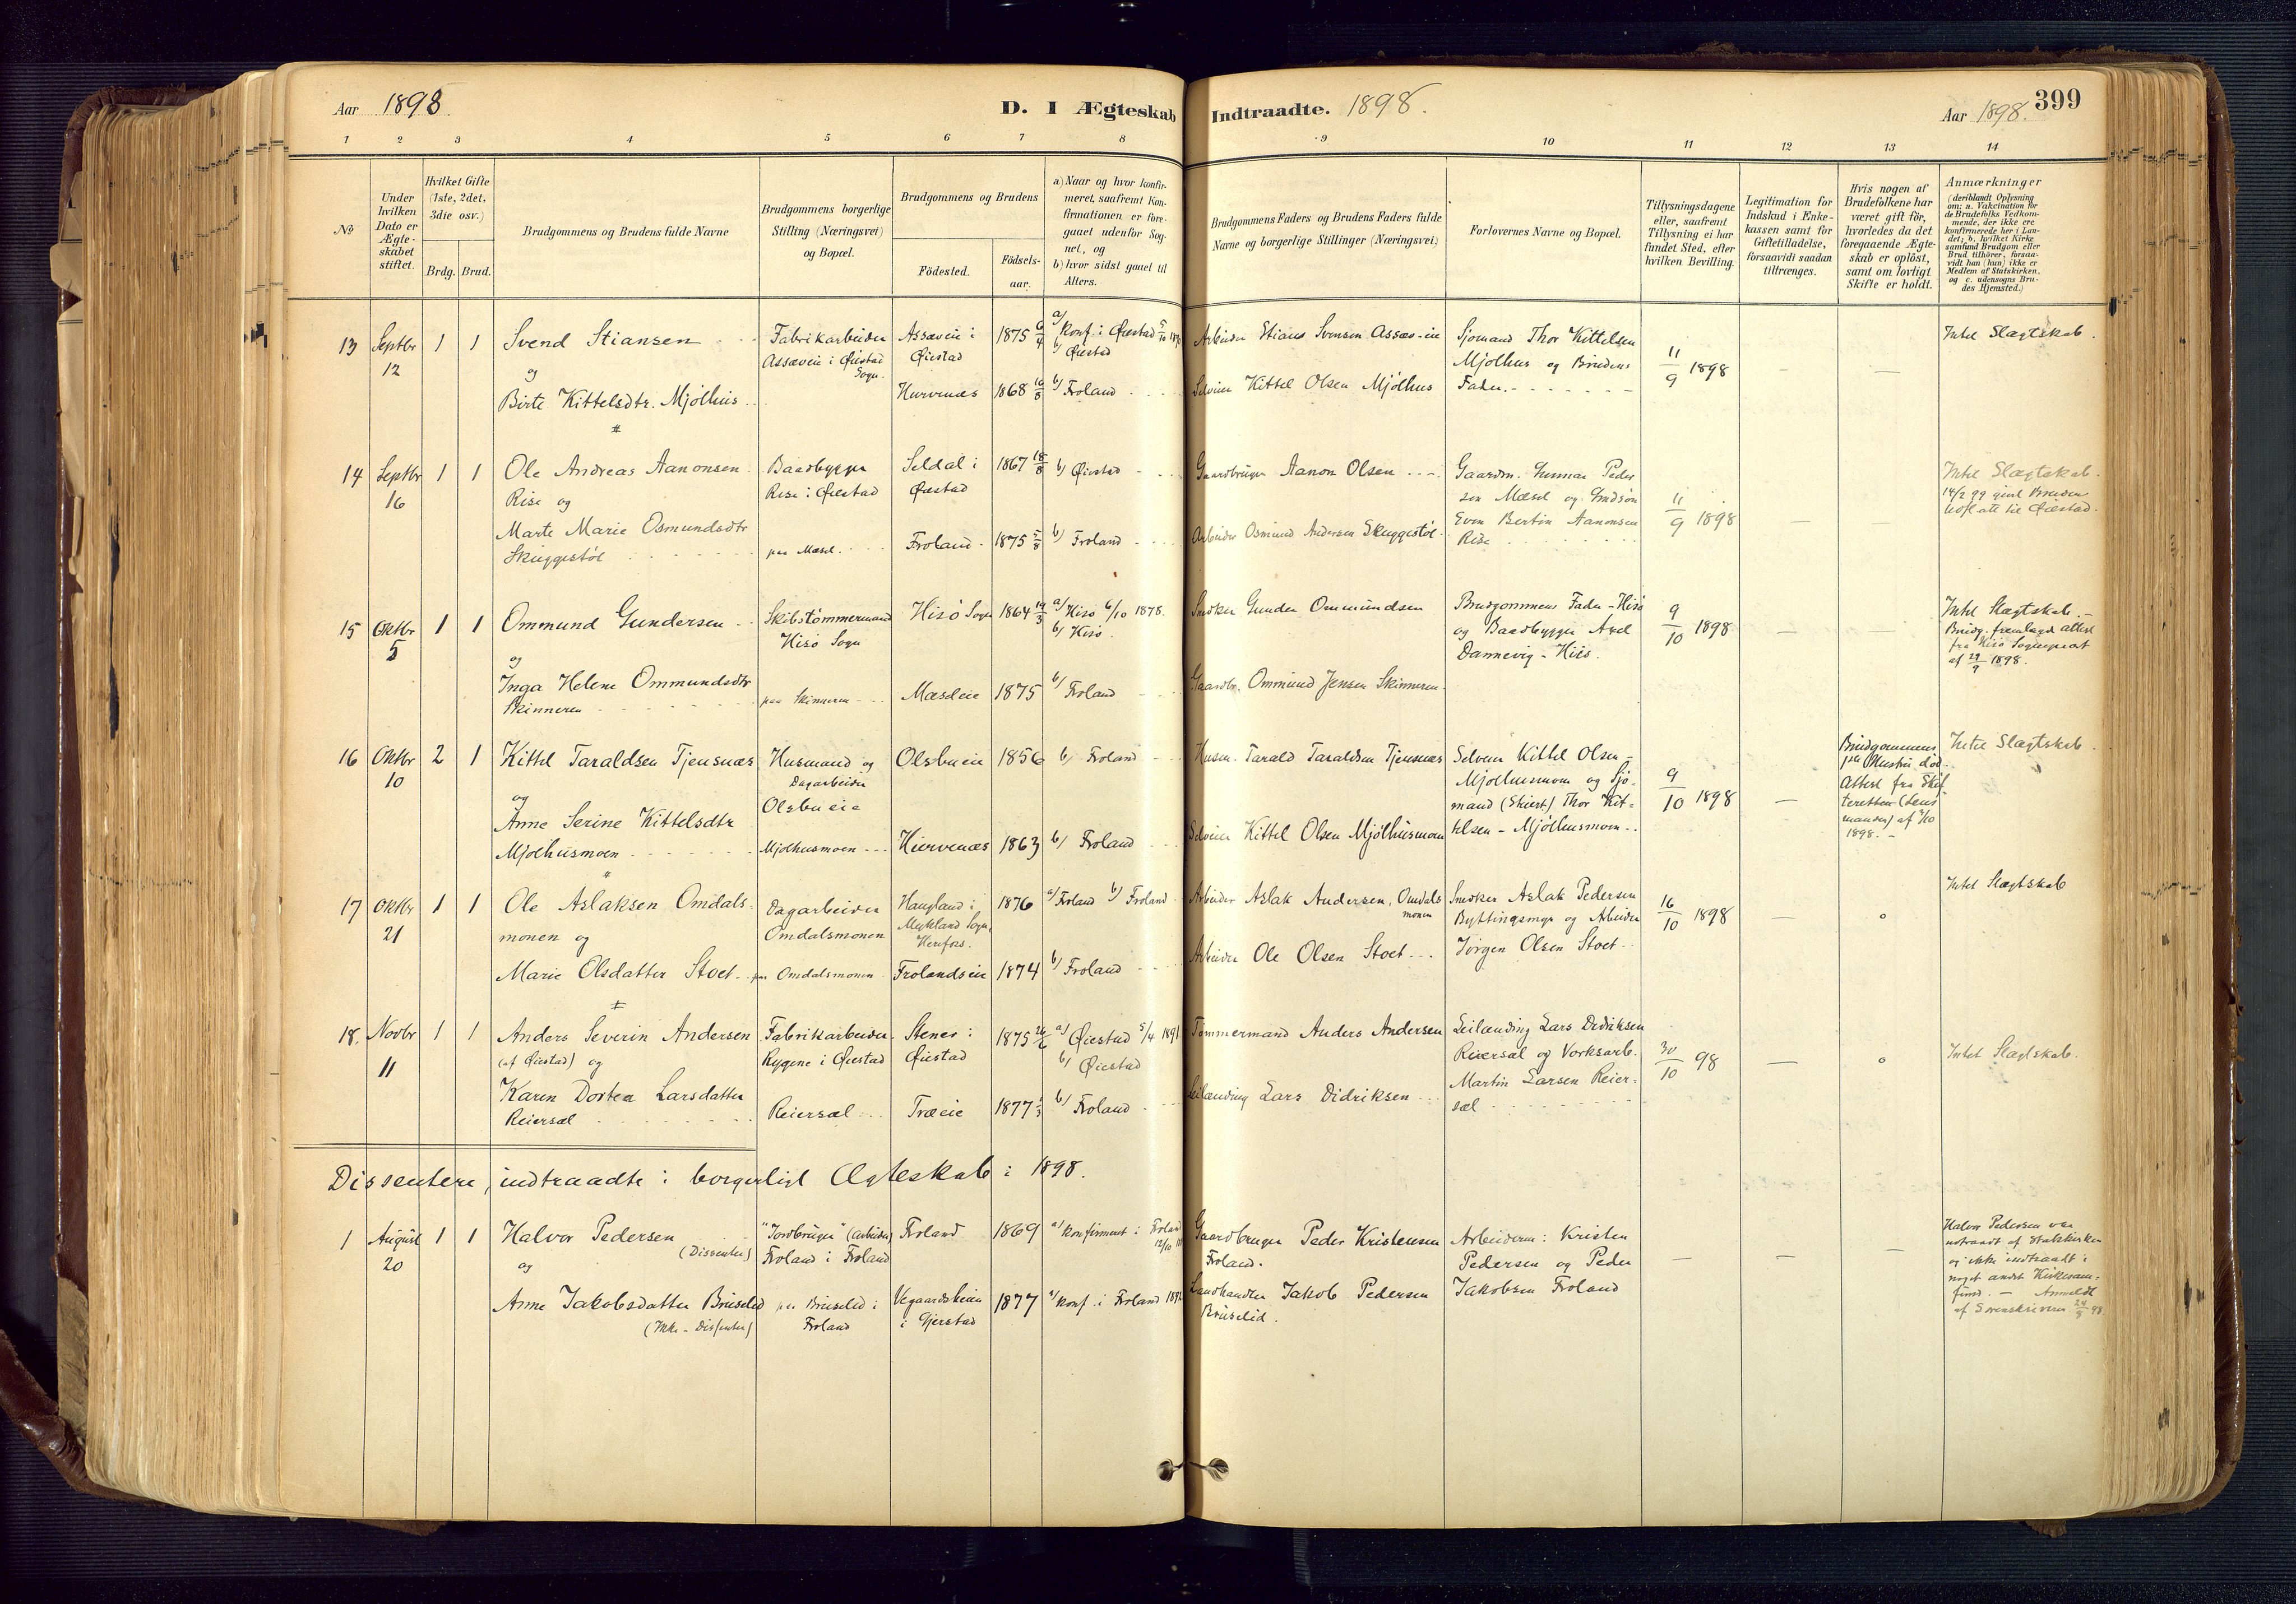 Aar 1898.
D. I Ægteskab Indtraadte. 1898.
Aar 1898. 399
1 2 3 4 5 6 7 8 9 10 11 12 13 14
No
Under hvilken Dato er Ægteskabet stiftet.
Hvilket Gifte (1ste, 2det, 3die osv.)
Brdg. Brud.
Brudgommens og Brudens fulde Navne
Brudgommens borgerlige Stilling (Næringsvei) og Bopæl.
Brudgommens og Brudens
Födested.
Födselsaar.
a) Naar og hvor konfirmeret, saafremt Konfirmationen er foregaaet udenfor Sognet, og
b) hvor sidst gaaet til Alters.
Brudgommens Faders og Brudens Faders fulde Navne og borgerlige Stillinger (Næringsvei)
Forlovernes Navne og Bopæl.
Tillysningsdagene eller, saafremt Tillysning ei har fundet Sted, efter hvilken Bevilling.
Legitimation for Indskud i Enkekassen samt for Giftetilladelse, forsaavidt saadan tiltrænges.
Hvis nogen af Brudefolkene har været gift för, hvorledes da det foregaaende Ægteskab er oplöst, samt om lovligt Skifte er holdt.
Anmærkninger
(deriblandt Oplysning om: a. Vakcination for de Brudefolks Vedkommende, der ikke ere konfirmerede her i Landet; b. hvilket Kirkesamfund Brudgom eller Brud tilhörer, forsaavidt han (hun) ikke er Medlem af Statskirken, og c. udensogns Brudes Hjemsted.)
13 Septbr 12 1 1
Svend Stiansen
og
Birte Kittelsdtr. Mjölhus
Fabrikarbeider
Assæveie i Øiestad Sogn.
Assæveie i Øiestad 1875 6/4
a/ Konf. i Øiestad
b/ Øiestad
Hurvenæs 1868 16/8 b/ Froland
Arbeider Stians Svensen Assæveie
Selveier Kittel Olsen Mjölhus
Sjomand Thor Kittelsen
Mjölhus og Brudens
Fader.
11/9 1898
Intet Slægtskab.
14 Septbr 16 1 1
Ole Andreas Aanonsen
Rise og
Marte Marie Osmundsdtr
Skuggestöl
Baadbygger
Rise i Øiestad
paa Mæsel.
Seldal i Øiestad 1867 18/8 b/ Øiestad
Froland 1875 5/8 b/ Froland
Gaardbruger Aanon Olsen
Arbeider Osmund Andersen Skuggestöl
Gaardm. Gunnar Peder
sen Mæsel og
Even Bertin Aanonsen
Rise
11/9 1898
Intet Slægtskab.
14/2 99 givet Bruden
til Øiestad.
15 Oktbr 5 1 1
Ommund Gundersen
og
Inga Helene Ommundsdtr
Skinneren
Skibstömmermand
Hisö Sogn
paa Skinneren
Hisö Sogn 1864 14/3
a/ Hisö 6/10 1878.
b/ Hisö.
Mæseleie 1875 b/ Froland
Snedker Gunder Ommundsen
Gaardbr. Ommund Jensen Skinneren
Brudgommens Fader - Hisö
og Baadbygger Axel
Dannevig - Hiis.
9/10 1898
Intet Slægtskab.
Brudg. fremlagde attest
fra Hisö Sogneprest
af 29/9 1898.
16 Oktbr 10 2 1
Kittel Taraldsen Tjensnæs
og
Anne Serine Kittelsdtr
Mjölhusmoen
Husmand og
Dagarbeider
Olsbu eie
Mjölhusmoen
Olsbu eie 1856 b/ Froland
Hurvenæs 1863 b/ Froland
Husm. Tarald Taraldsen Tjensnæs
Selveier Kittel Olsen Mjölhusmoen
Selveier Kittel Olsen
Mjölhusmoen og Sjö-
mand (Skiert) Thor Kit-
telsen - Mjölhusmoen.
9/10 1898
Brudgommens
1ste Hustru död.
Attest fra Skif-
teretten (Lens
manden) af /10
1898.
Intet Slægtskab.
17 Oktbr 21 1 1
Ole Aslaksen Omdals-
monen og
Marie Olsdatter Stoet
Dagarbeider
Omdalsmonen
paa Omdalsmonen
Haugland i Mykland Sogn, Herefoss. 1876 a/ Froland b/ Froland
Frolandseie 1874 b/ Froland
Arbeider Aslak Andersen, Omdals
monen
Arbeider Ole Olsen Stoet
Snedker Aslak Pedersen
Byttingsmyr og Arbeider
Jörgen Olsen Stoet
16/10 1898
Intet Slægtskab
18. Novbr 11 1 1
Anders Severin Andersen
(af Øiestad) og
Karen Dortea Larsdatter
Reiersæl
Fabrikarbeider
Rygene i Øiestad
Reiersæl
Stener i Øiestad 1875 26/6
a/ Øiestad 5/4 1891
b/ Øiestad
Træeie 1877 1/3 b/ Froland
Tömmermand Anders Andersen
Leilænding Lars Didriksen
Leilænding Lars Didriksen
Reiersæl og Værksarb.
Martin Larsen Reier-
sæl
30/10 98
Intet Slægtskab.
Dissentere, indtraadte i borgerligt Ægteskab i 1898.
1 August 20 1 1
Halvor Pedersen
(Dissenter)
og
Anne Jakobsdatter Bruselid
(Ikke-Dissenter)
"Jordbruger" (Arbeider)
Froland i Froland
paa Bruselid i
Froland
Froland 1869 a/ Konfirmeret i Froland 12/10
Vegaardsheien i Gjerstad 1877 a/ Konf. i Froland 1892
Gaardbruger Peder Kristensen
Froland.
Landhandler Jakob Pedersen
Bruselid.
Arbeiderne: Kristen
Pedersen og Peder
Jakobsen Froland
Halvor Pedersen var
udtraadt af Statskirken
og ikke indtraadt i
noget andet Kirkesam-
fund. - Anmeldt
af Sorenskriveren 24/9 98